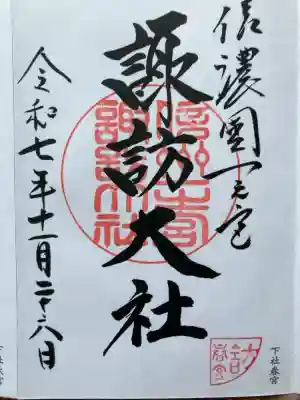 信濃國一之宮
諏訪大社
令和七年十一月二十六日
下社春宮
下社秋宮